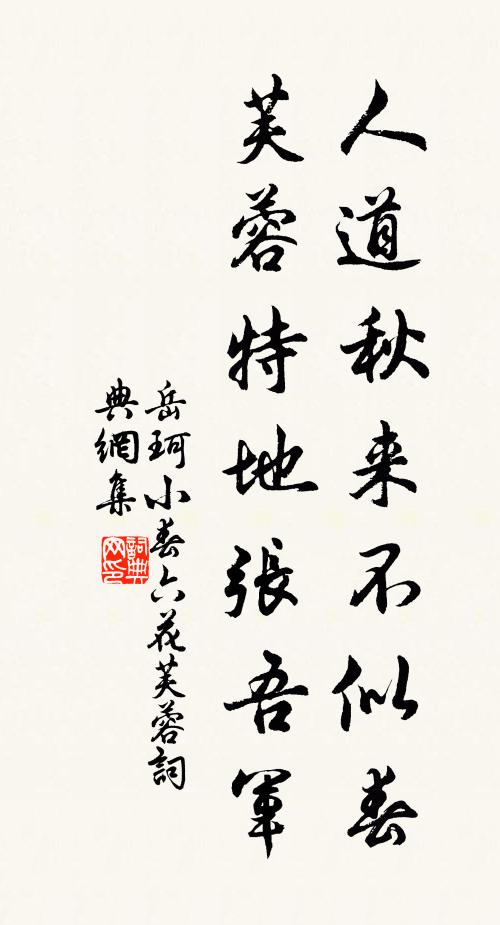 人道秋来不似春
芙蓉特地張吾軍
岳珂小春六花芙蓉詞
典網集
詞典网印